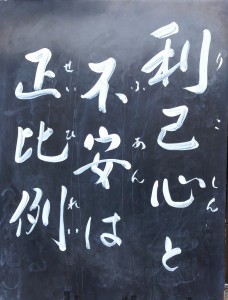 利己心と
不安は
正比例
りこしん
ふあん
せいひれい